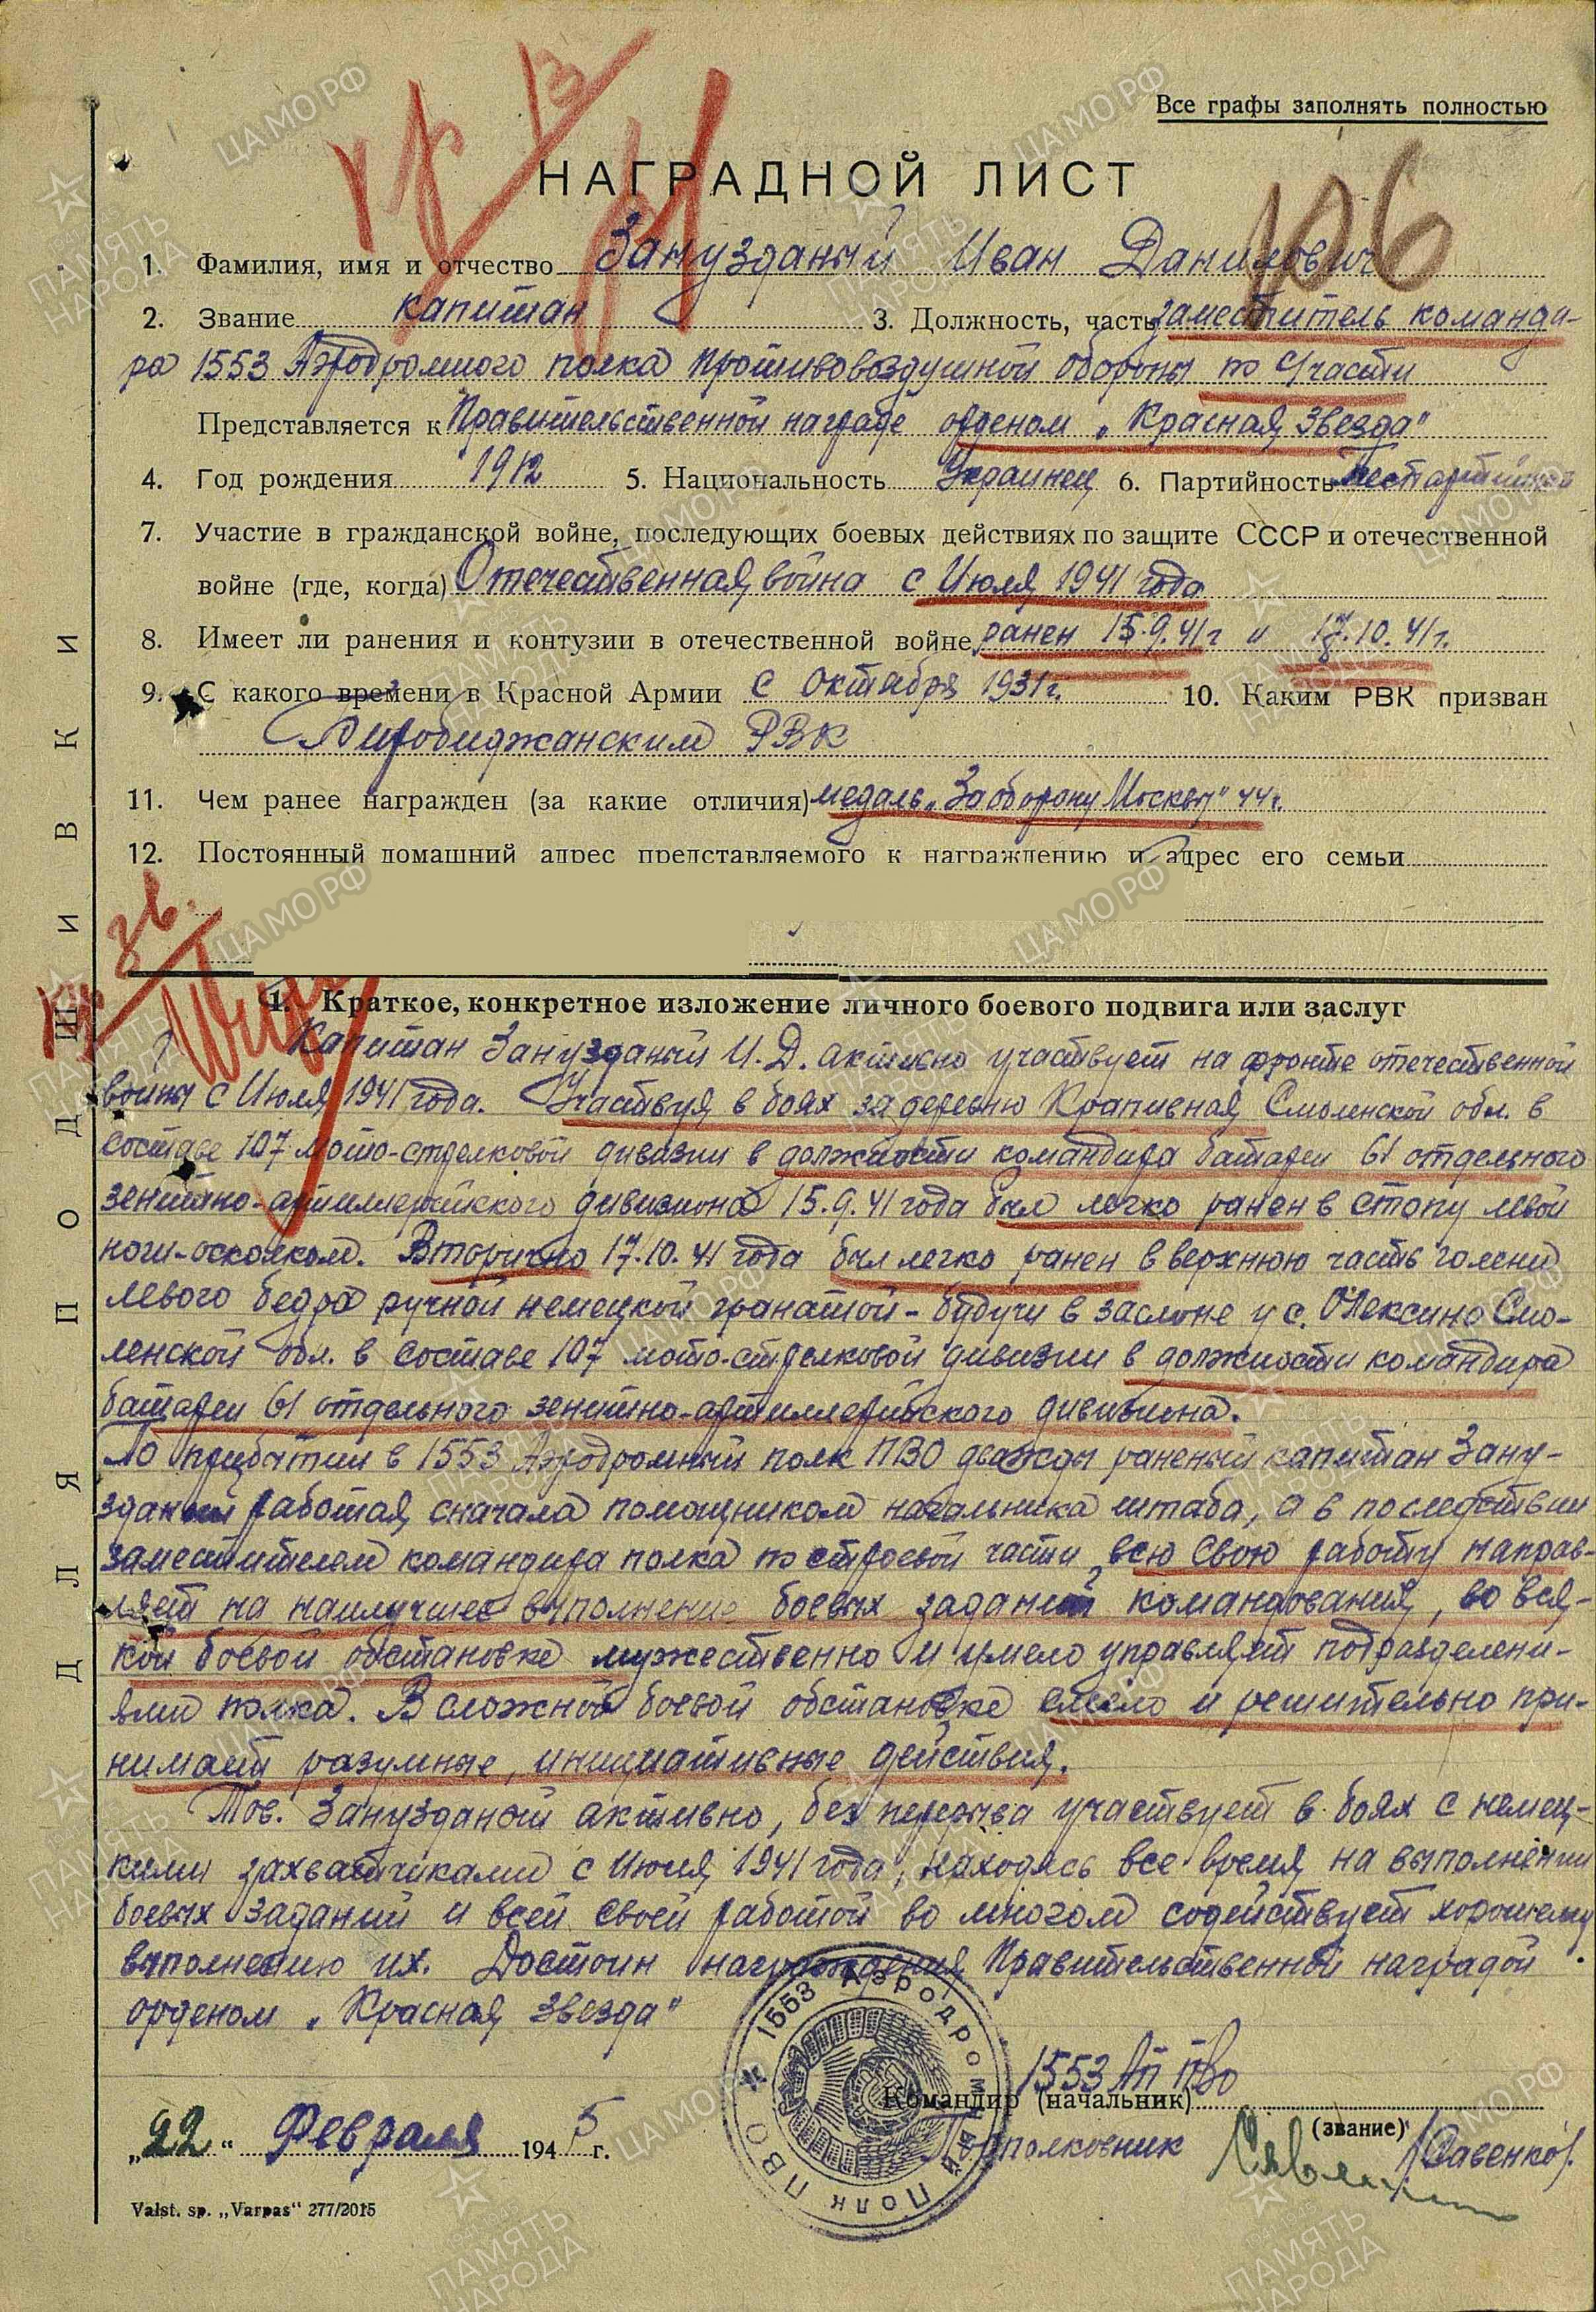 Все графы заполнять полностью
НАГРАДНОЙ ЛИСТ
106
1. Фамилия, имя и отчество Занузданый Иван Данилович
2. Звание капитан 3. Должность, часть заместитель команди-
ра 1553 Аэродромного полка Противовоздушной обороны по с/части
Представляется к Правительственной награде орденом „Красная Звезда"
4. Год рождения 1912 5. Национальность Украинец 6. Партийность
7. Участие в гражданской войне, последующих боевых действиях по защите СССР и отечественной
войне (где, когда) Отечественная война с Июля 1941 года
8. Имеет ли ранения и контузии в отечественной войне ранен 15.9.41г и 17.10.41г.
9. С какого времени в Красной Армии с Октября 1931г. 10. Каким РВК призван
Биробиджанским РВК
11. Чем ранее награжден (за какие отличия) медаль „За оборону Москвы" 44г.
12. Постоянный домашний адрес представляемого к награждению и адрес его семьи
1. Краткое, конкретное изложение личного боевого подвига или заслуг
Капитан Занузданый И.Д. активно участвует на фронте отечественной
войны с Июля 1941 года. Участвуя в боях за деревню Крапивная Смоленской обл. в
составе 107 мото-стрелковой дивизии в должности командира батареи 61 отдельного
зенитно-артиллерийского дивизиона 15.9.41 года был легко ранен в стопу левой
ноги-осколком. Вторично 17.10.41 года был легко ранен в верхнюю часть голени
левого бедра ручной немецкой гранатой - будучи в заслоне у с. Олексино Смо-
ленской обл. в составе 107 мото-стрелковой дивизии в должности командира
батареи 61 отдельного зенитно-артиллерийского дивизиона.
По прибытии в 1553 Аэродромный полк ПВО дважды раненый капитан Зану-
зданый работая сначала помощником начальника штаба, а в последствии
заместителем командира полка по строевой части, всю свою работу направ-
ляет на наилучшее выполнение боевых заданий командования, во вся-
кой боевой обстановке мужественно и умело управляет подразделени-
ями полка. В сложной боевой обстановке смело и решительно при-
нимает разумные, инициативные действия.
Тов. Занузданый активно, без перерыва участвует в боях с немец-
кими захватчиками с Июля 1941 года, находясь все время на выполнении
боевых заданий и всей своей работой во многом содействует хорошему
выполнению их. Достоин награждения Правительственной наградой
орденом „Красная Звезда"
1553 АП ПВО
Командир (начальник)
(звание)
Подполковник /Савенко/.
„22" Февраля 1945 г.
1553 Аэродромный Полк ПВО
Valst. sp. „Varpas" 277/2015
ДЛЯ ПОДШИВКИ
ЦАМО РФ
ПАМЯТЬ НАРОДА